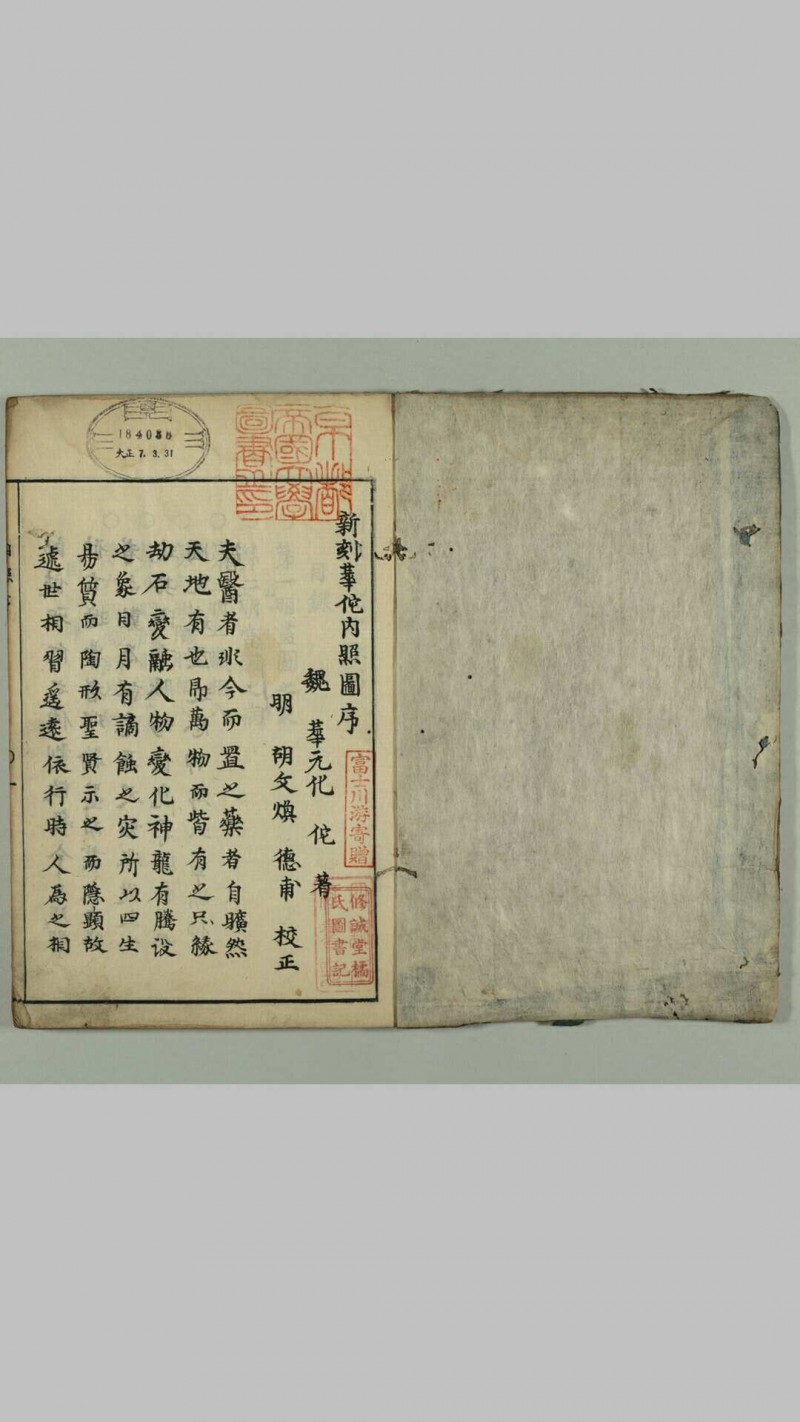 新刻華佗內照圖序
魏 華元化 佗 著
明 胡文煥 德甫 校正
夫醫者非今而置之藥者自曠然
天地有也昂萬物而皆有之只緣
劫石變融人物變化神龍有騰没
之象日月有謫蝕之灾所以四生
易質而陶形聖賢示之而隱顯故
遽世相習遥遠依行時人爲之相
京都
帝國大學
圖書之印
184038
大正 7. 3. 31
富士川游寄贈
修誠堂橘
氏圖書記